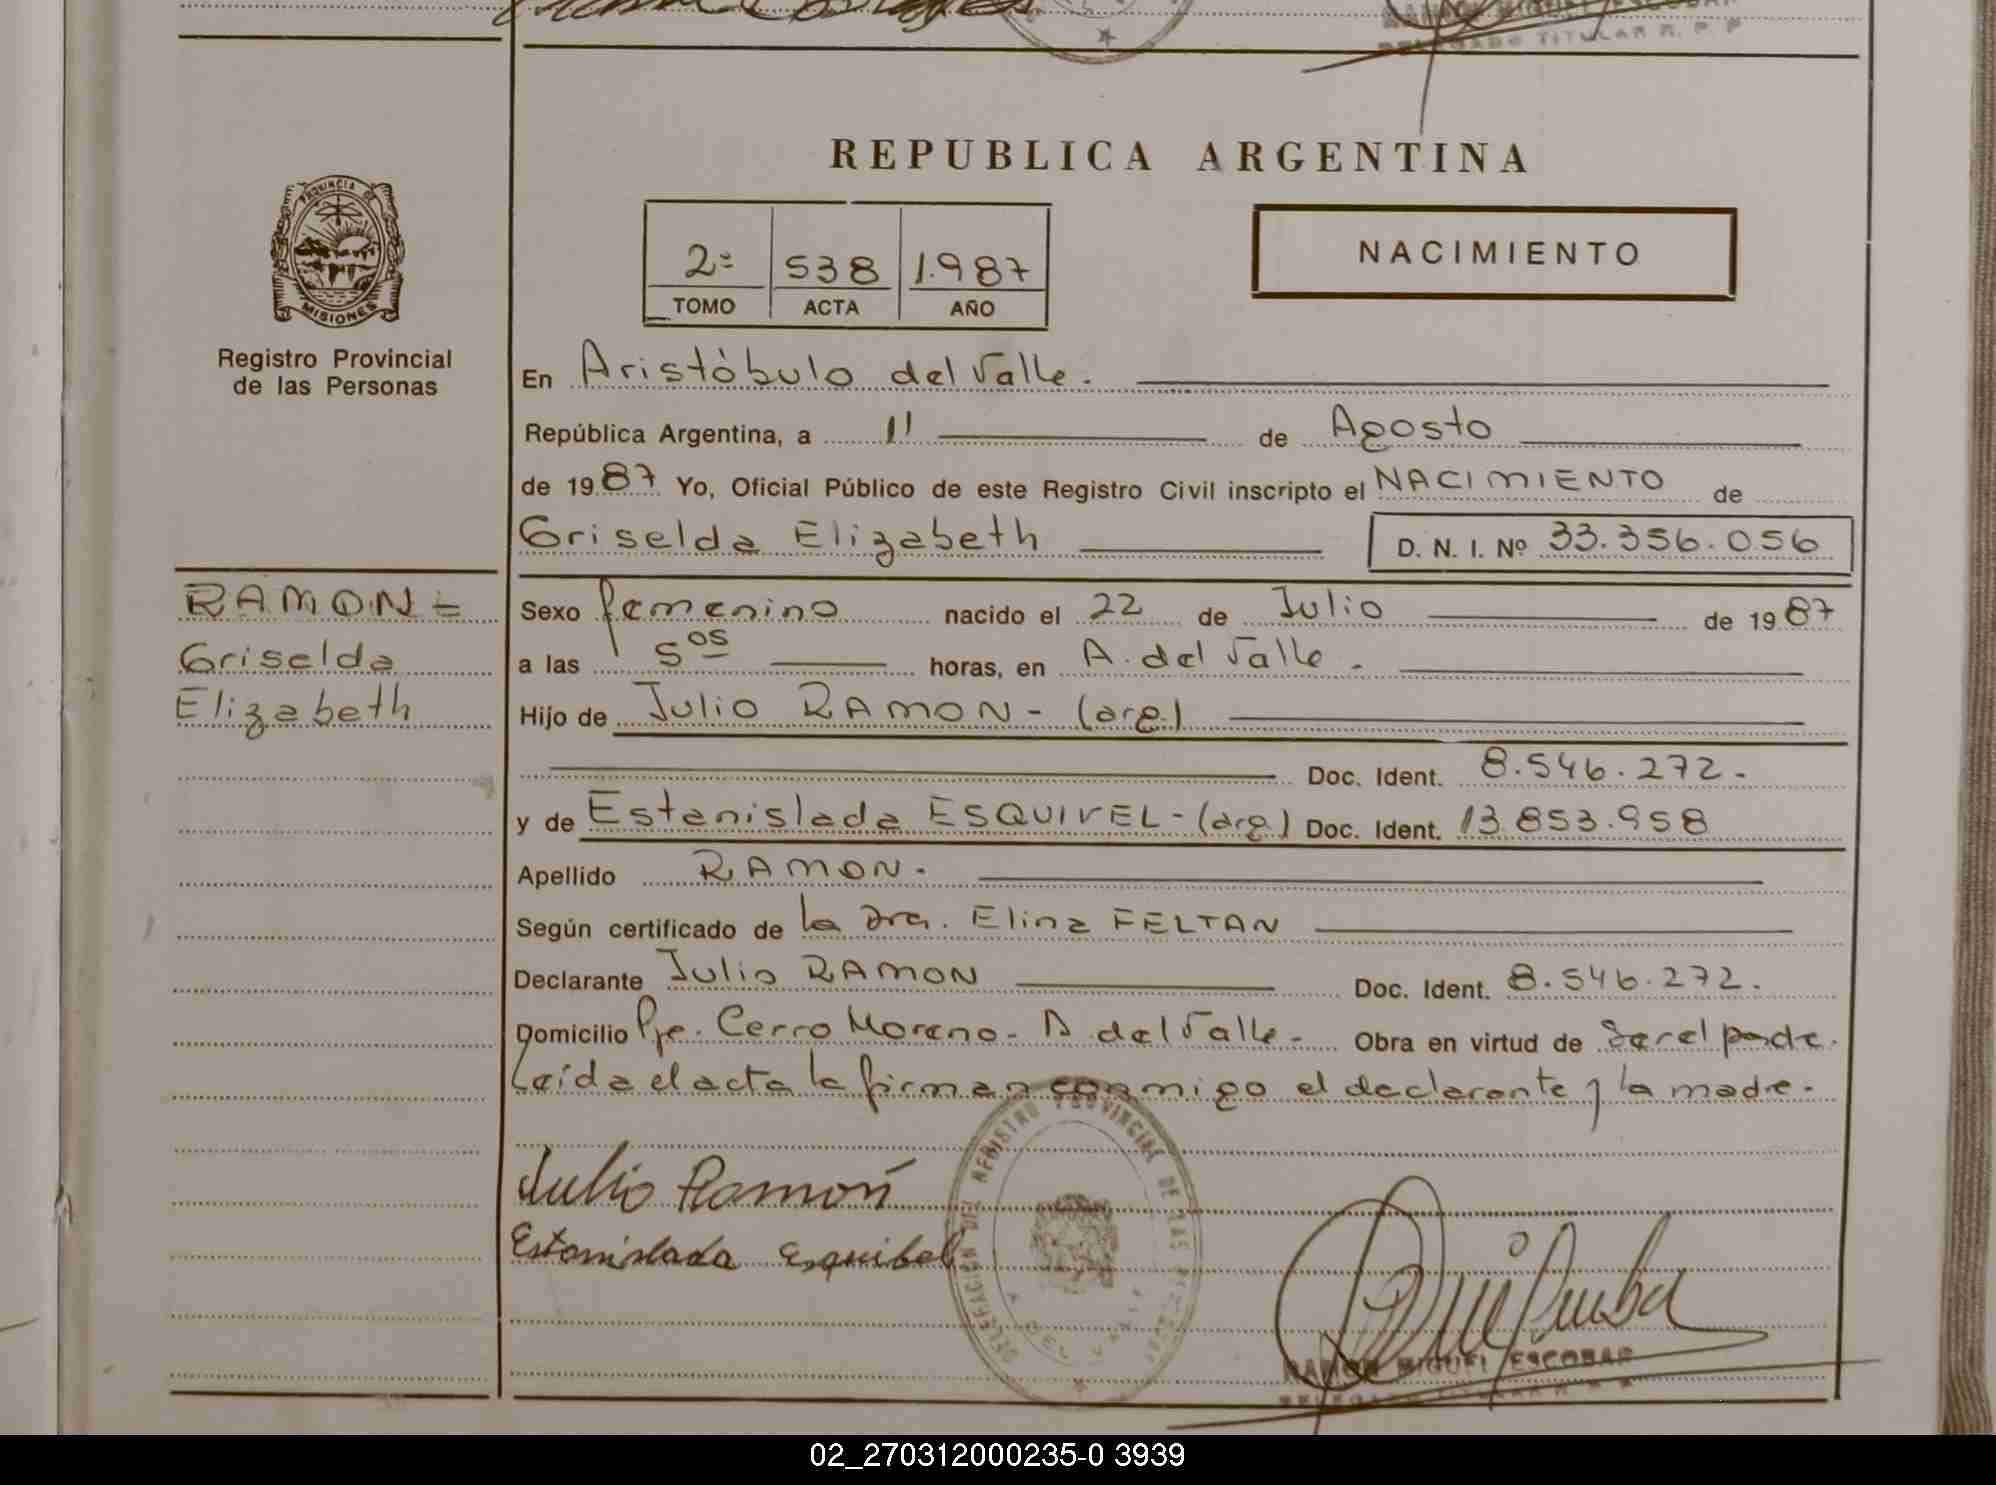 RAMON MIGUEL ESCOBAR
DELEGADO TITULAR R. P. P
REPUBLICA ARGENTINA
PROVINCIA DE
MISIONES
Registro Provincial
de las Personas
2º 538 1.987
TOMO ACTA AÑO
NACIMIENTO
En Aristóbulo del Valle.
República Argentina, a 11 de Agosto
de 1987 Yo, Oficial Público de este Registro Civil inscripto el NACIMIENTO de
Griselda Elizabeth D. N. I. Nº 33.356.056
RAMON=
Griselda
Elizabeth
Sexo femenino nacido el 22 de Julio de 1987
a las 5 os horas, en A. del Valle.
Hijo de Julio RAMON- (arg.)
Doc. Ident. 8.546.272.
y de Estanislada ESQUIVEL- (arg.) Doc. Ident. 13.853.958
Apellido RAMON.
Según certificado de la Dra. Elina FELTAN
Declarante Julio RAMON Doc. Ident. 8.546.272.
Domicilio Pje. Cerro Moreno- A. del Valle- Obra en virtud de Ser el padre.
Leída el acta la firman conmigo el declarante y la madre.
Julio Ramón
Estanislada Esquibel
DELEGACION DEL REGISTRO PROVINCIAL DE LAS
A. DEL VALLE
RAMON MIGUEL ESCOBAR
DELEGADO TITULAR R. P.
02_270312000235-0 3939